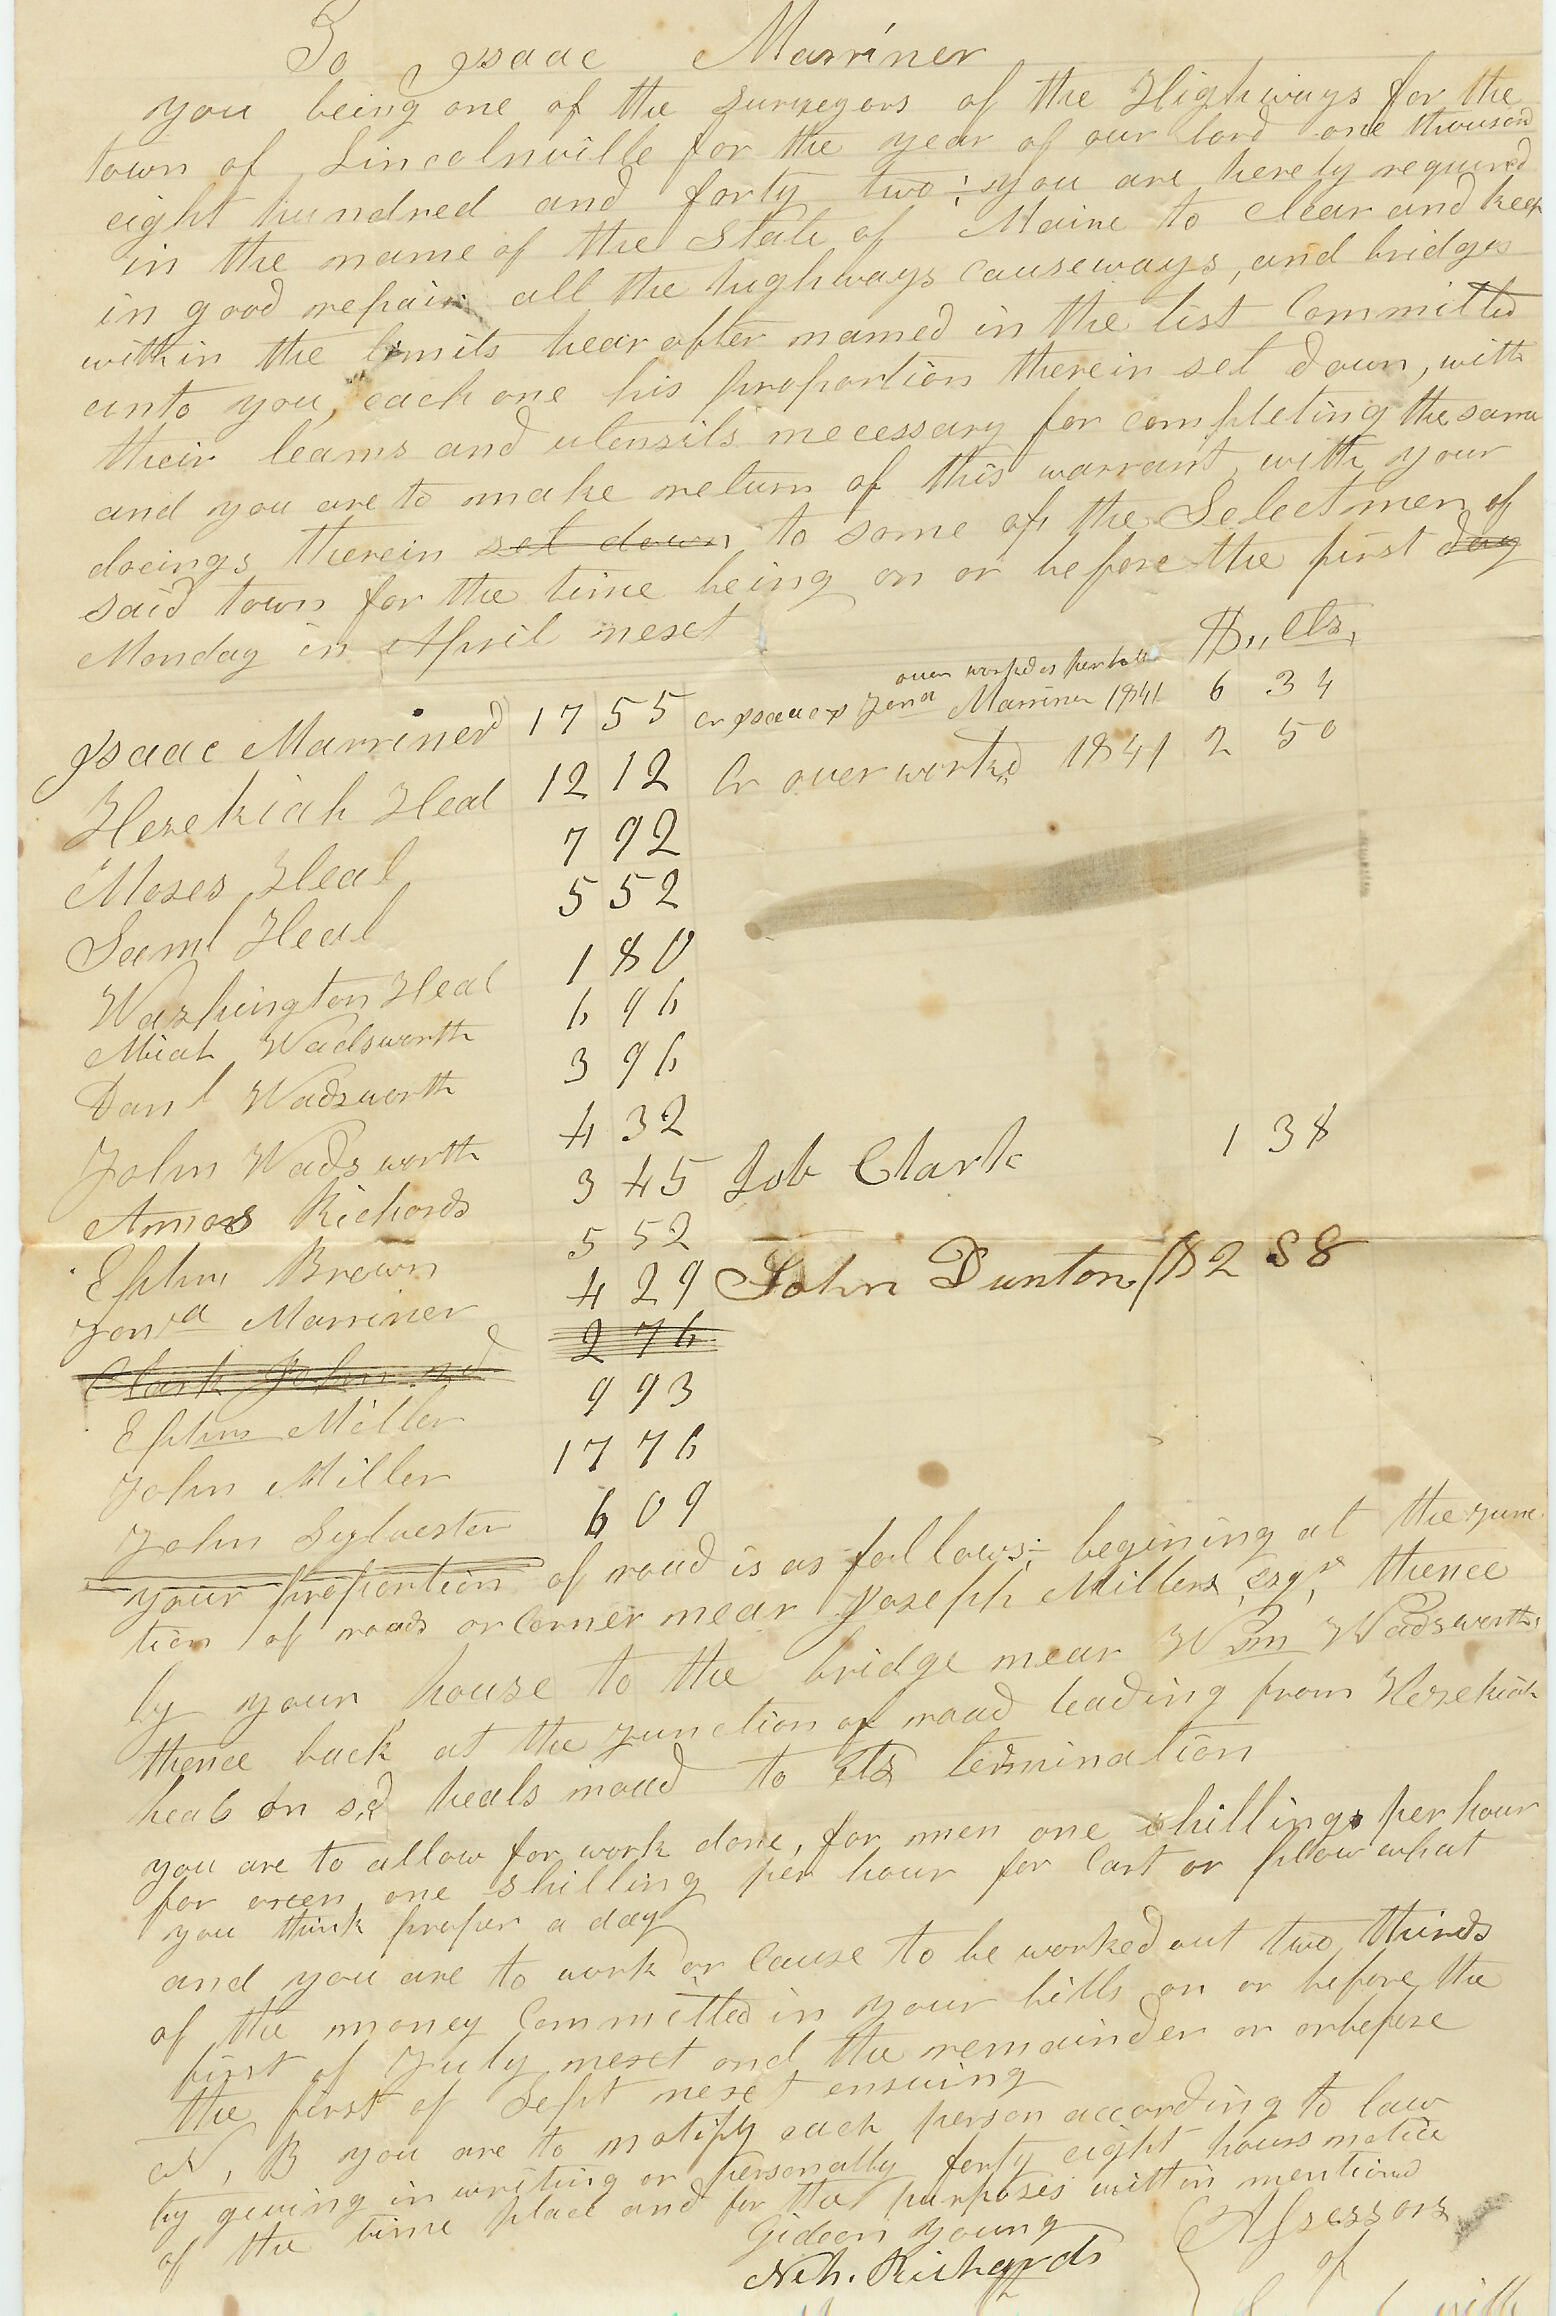 To Isaac Marriner
you being one of the surveyors of the Highways for the
town of Lincolnville for the year of our lord one thousand
eight hundred and forty two :- you are herely required
in the name of the State of Maine to clear and keep
in good repair all the highways causeways, and bridges
within the limits hear after named in the list Committed
unto you, each one his proportion therein set down, with
their teams and utensils necessary for completing the same
and you are to make return of this warrant, with your
doeings therein set down to some of the Selectmen of
said town for the time being on or before the first day
Monday in April next
$ ,, Cts,
over worked as per bill
Isaac Marriner 17 55 Cr Isaac & Jona Marriner 1841 6 34
Hezekiah Heal 12 12 Cr over worked 1841 2 50
Moses Heal 7 92
Saml Heal 5 52
Washington Heal 1 80
Micah Wadsworth 6 96
Danl Wadsworth 3 96
John Wadsworth 4 32
Amos Richards 3 45 Job Clark 1 38
Ephm Brown 5 52
Jona Marriner 4 29 John Dunton $2 88
Clark John 2d 2 76
Ephm Miller 9 93
John Miller 17 76
John Sylvester 6 09
your proportion of road is as follows :- begining at the junc
tion of roads or Corner near Joseph Millers esqr, thence
by your house to the bridge near Wm Wadsworths
thence back at the junction of road leading from Hezekiah
heals on sd heals road to its termination
you are to allow for work done, for men one shilling per hour
for oxen, one shilling per hour for Cart or plow what
you think proper a day
and you are to work or Cause to be worked out two thirds
of the money Committed in your bills on or before the
first of July next and the remainder on or before
the first of Sept next ensuing
N, B you are to notify each person according to law
by giveing in writing or personally forty eight hours notice
of the time place and for the purposes within mentiond
Gideon Young Assessors
Neh. Richards of